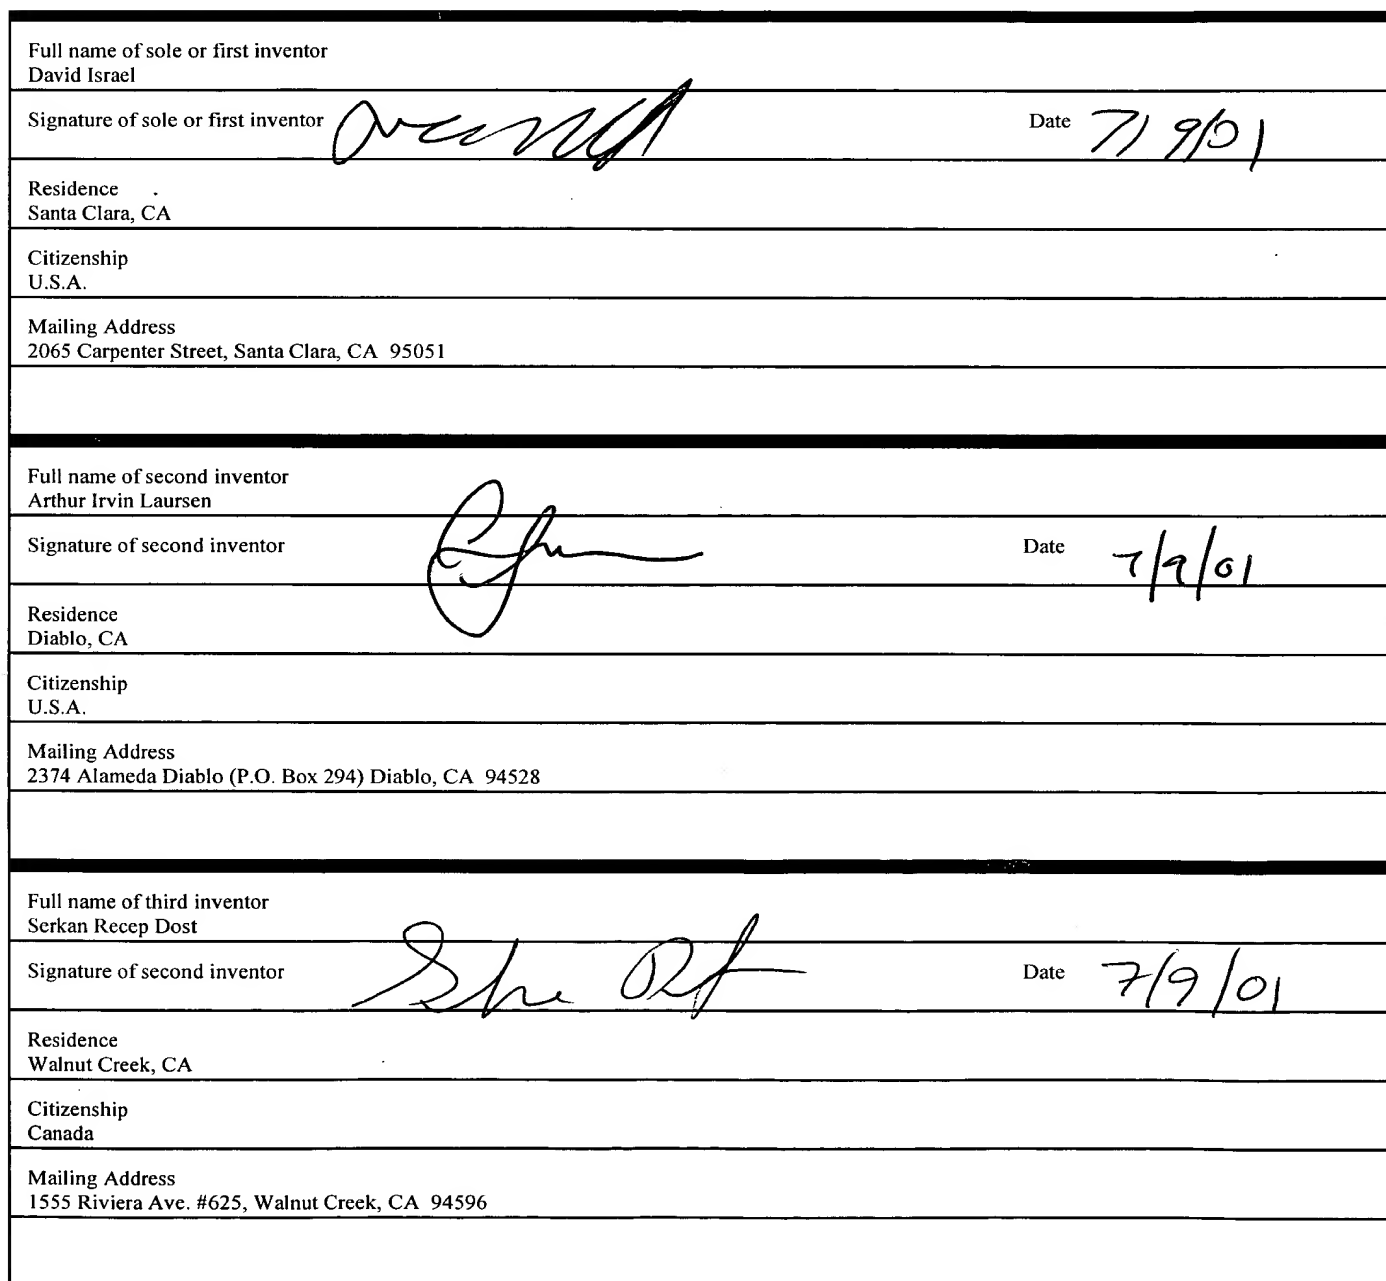 Full name of sole or first inventor
David Israel
Signature of sole or first inventor Date 7/9/01
Residence
Santa Clara, CA
Citizenship
U.S.A.
Mailing Address
2065 Carpenter Street, Santa Clara, CA 95051
Full name of second inventor
Arthur Irvin Laursen
Signature of second inventor Date 7/9/01
Residence
Diablo, CA
Citizenship
U.S.A.
Mailing Address
2374 Alameda Diablo (P.O. Box 294) Diablo, CA 94528
Full name of third inventor
Serkan Recep Dost
Signature of second inventor Date 7/9/01
Residence
Walnut Creek, CA
Citizenship
Canada
Mailing Address
1555 Riviera Ave. #625, Walnut Creek, CA 94596